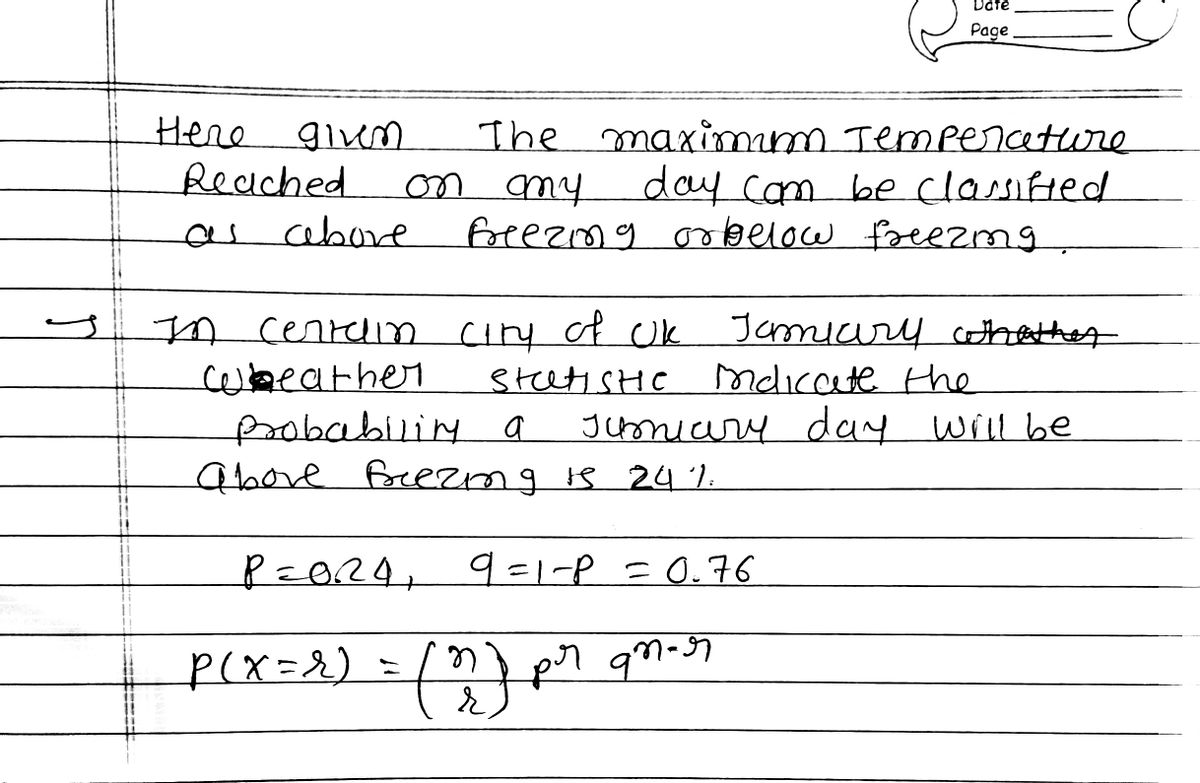 Date
Page
Here given The maximum Temperature
Reached on any day can be classified
as above freezing or below freezing.
→ In certain city of UK January whather
weather statistic indicate the
probability a January day will be
above freezing is 24%.
P = 0.24, q = 1-P = 0.76
P(X=r) = (n r) p^r q^n-r